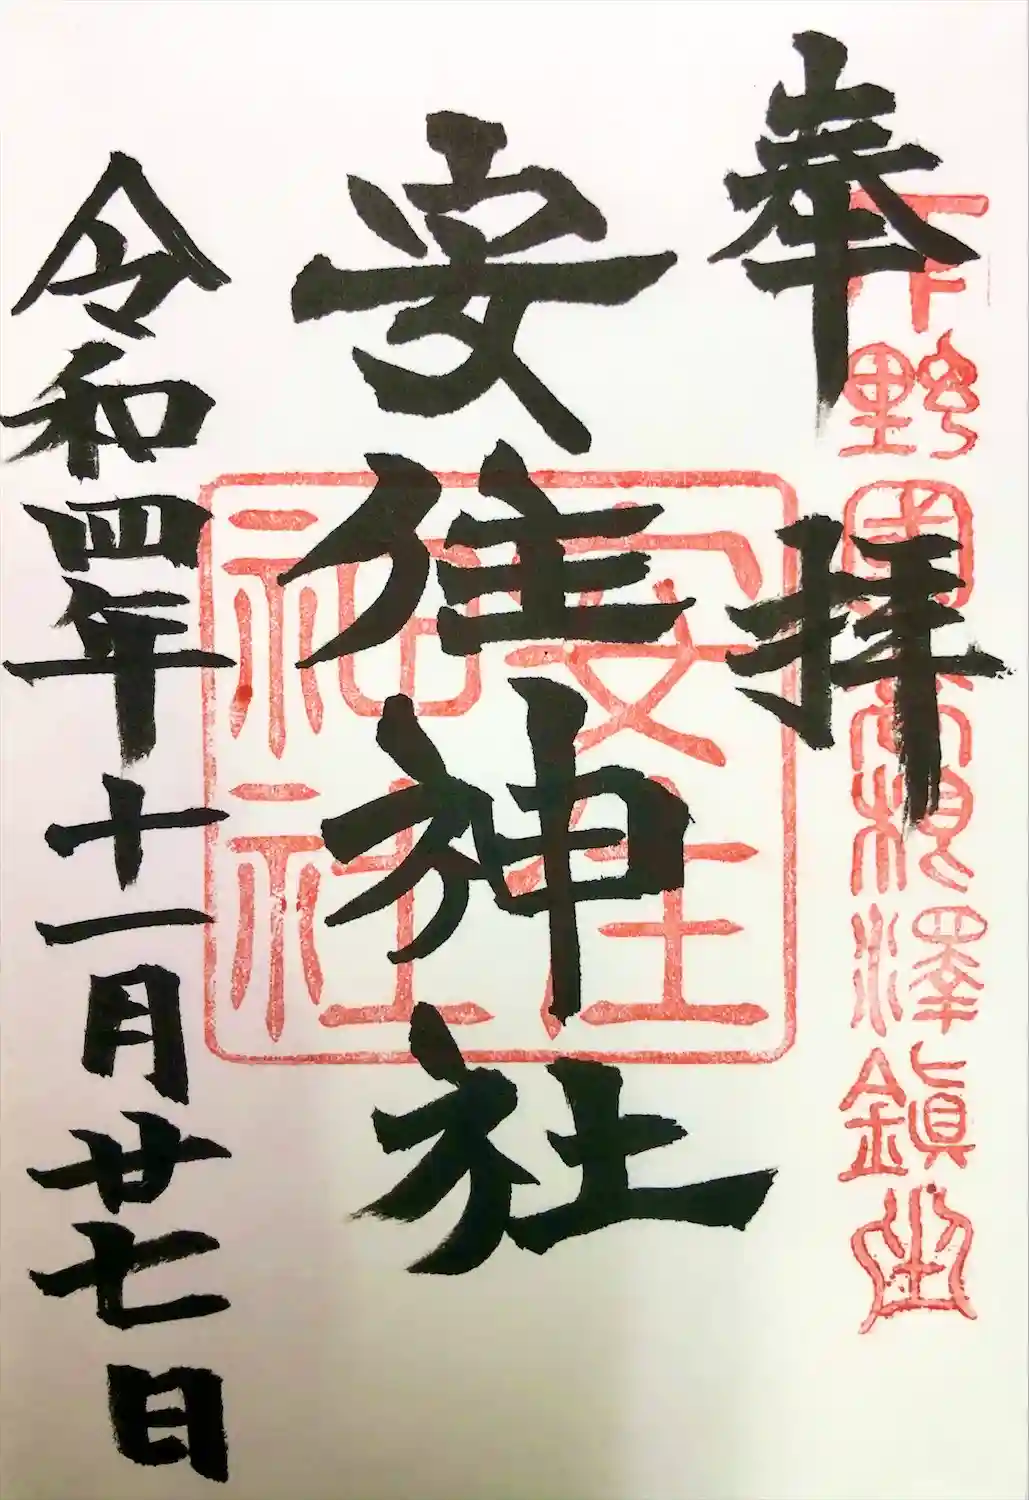 奉拝
下野國赤根澤鎭坐
安住神社
安住神社
令和四年十一月廿七日